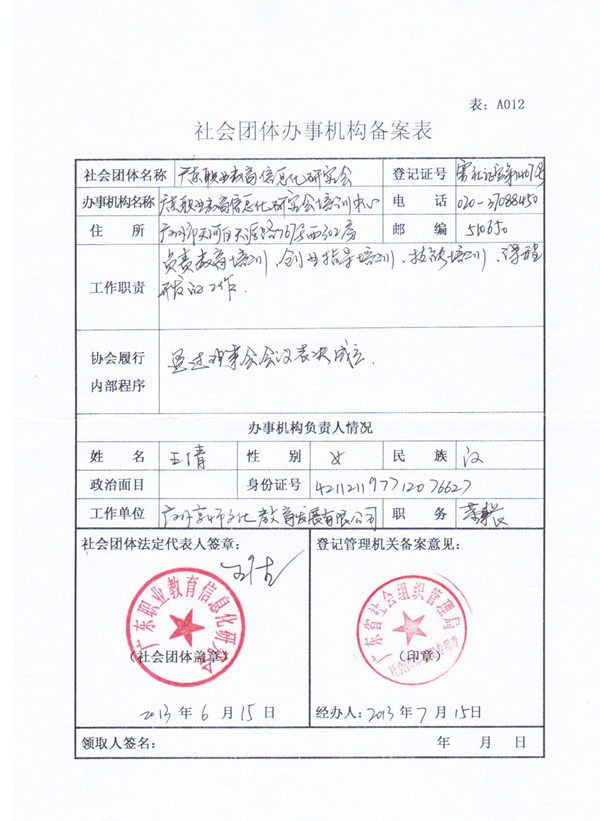 表：A012
社会团体办事机构备案表
社会团体名称 广东职业教育信息化研究会 登记证号
办事机构名称 广东职业教育信息化研究会培训中心 电 话 020-37088450
住 所 邮 编 510650
工作职责 负责教育培训、创业指导培训、技能培训、课程
开发的工作.
协会履行
内部程序 通过理事会会议表决成立.
办事机构负责人情况
姓 名 王倩 性 别 女 民 族 汉
政治面目 身份证号
工作单位 教育发展有限公司 职 务
社会团体法定代表人签章： 登记管理机关备案意见：
广东职业教育信息化研究会
广东省社会组织管理局
（社会团体盖章） （印章）
2013 年 6 月 15 日 经办人：2013 年 7 月 15日
领取人签名： 年 月 日